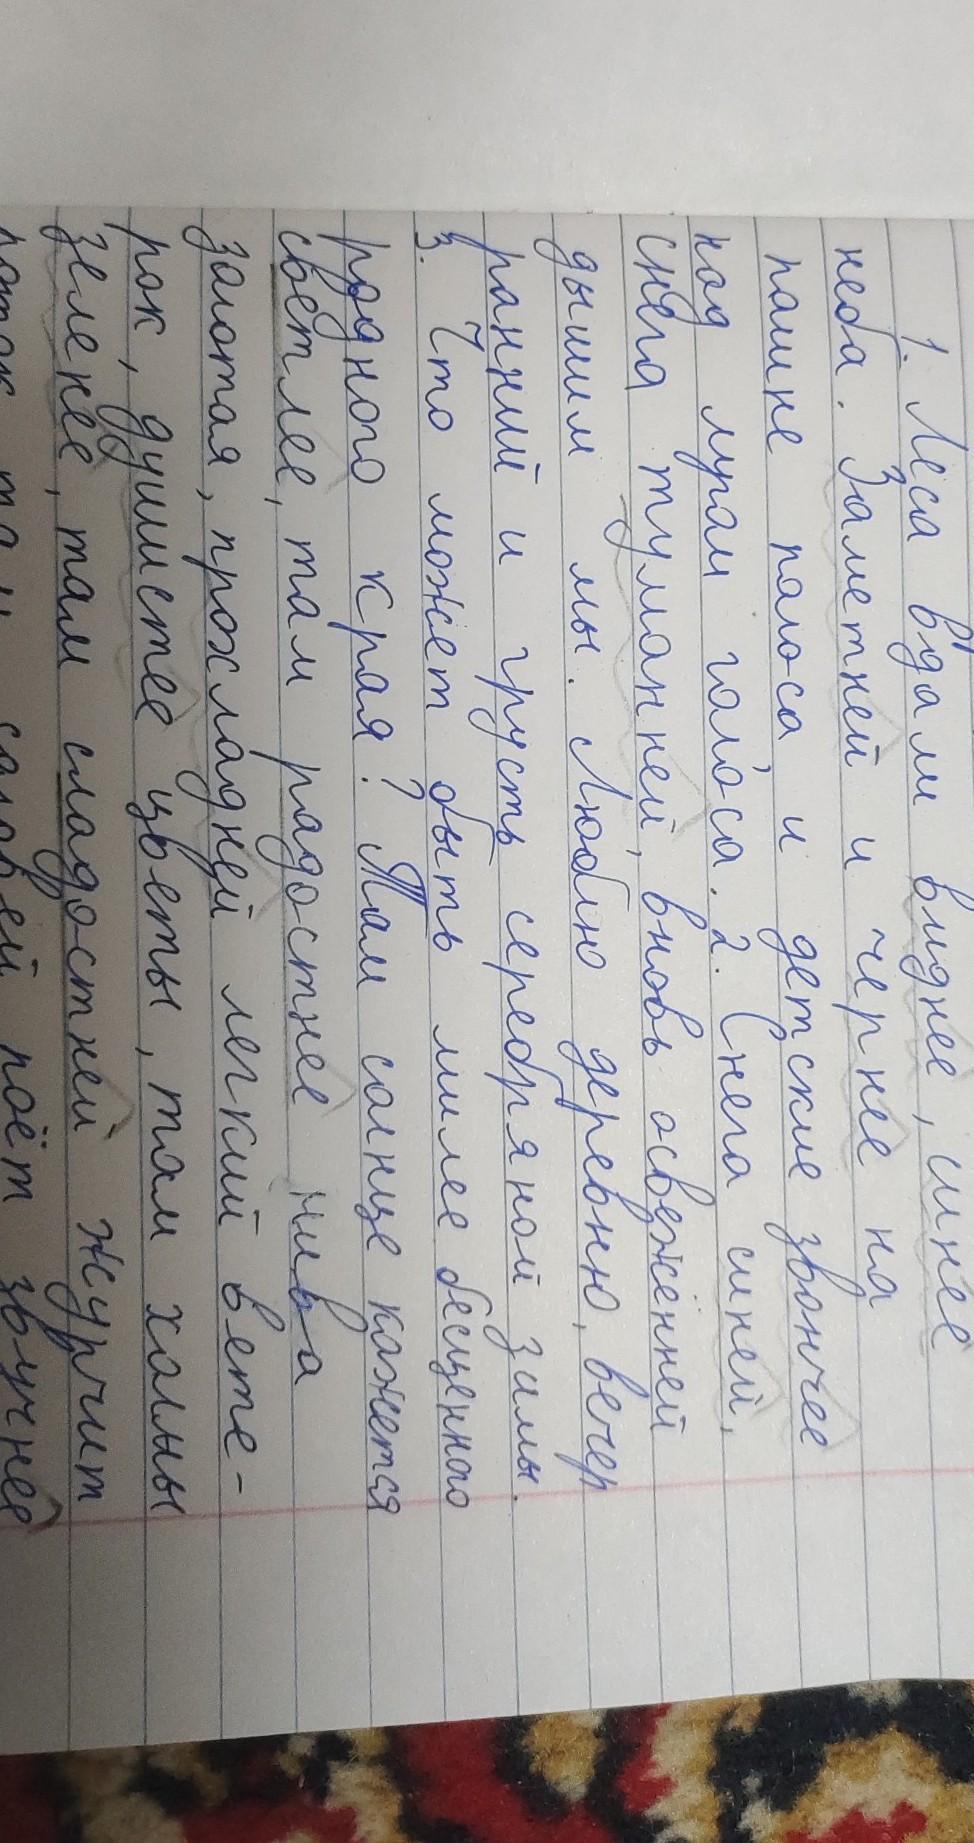 1. Леса вдали виднее, синее
неба. Заметней и чернее на
пашне полоса и детские звончее
над лугом голоса. 2. Снега синей,
снега туманней, вновь освежённей
дышим мы. Люблю деревню, вечер
ранний и грусть серебряной зимы.
3. Что может быть милее бесценного
родного края? Там солнце кажется
светлее, там радостнее нива
золотая, прохладней легкий ветерок,
рок, душистее цветы, там холмы
зеленее, там сладостней журчит
поток, там соловей поёт звучнее